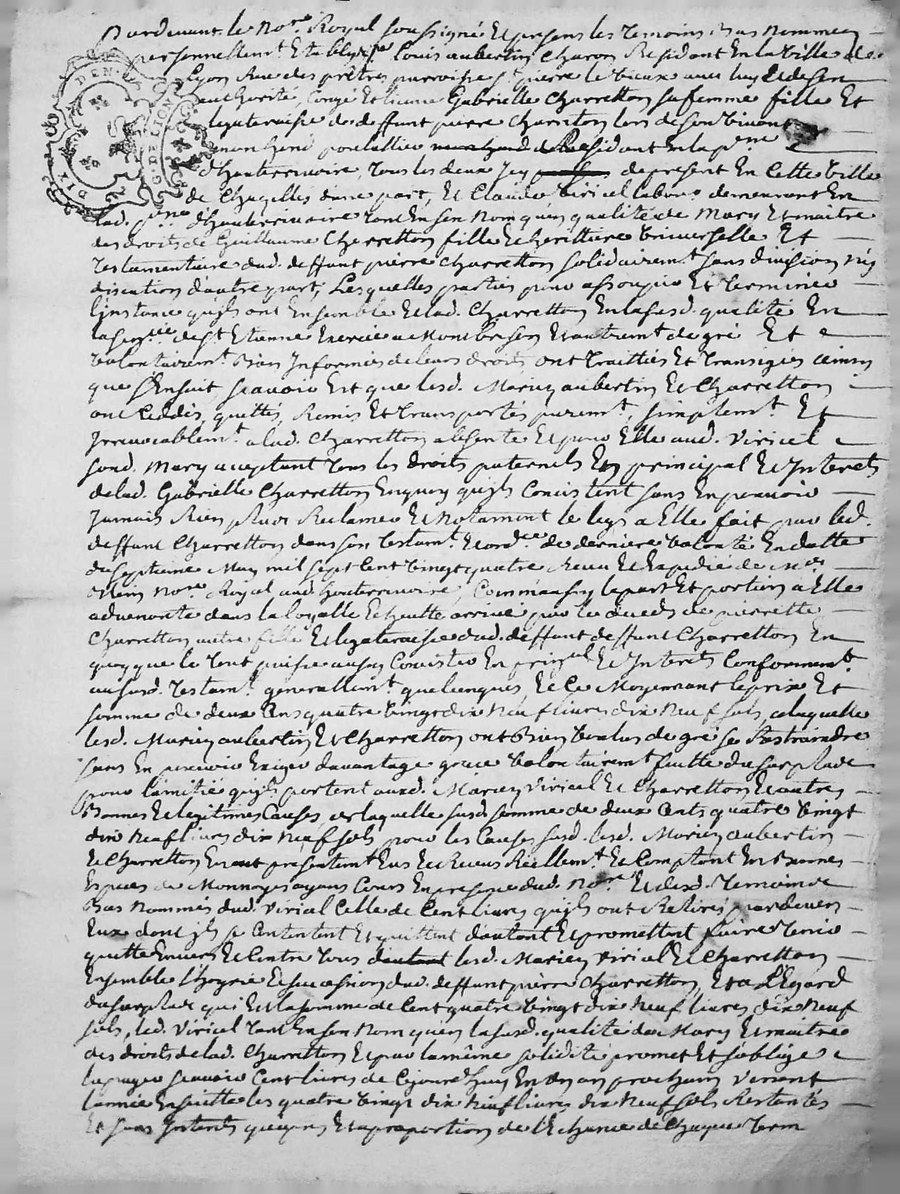 Pardevant le No.re Royal soussigné Et presens les Temoins Bas Nommes
personnellem.t Etably S.r Louis aubertin Charon Residant En la Ville de
Lyon Rue des prêtres parroisse S.t pierre le Vieux avec luy Et de son
authorité, Congé Et Licence Gabrielle Charretton sa femme fille Et
legateraise de deffunt pierre Charreton lors de son Vivant
poulallier Residant En la p.sse
d'hauterivoire, Tous les deux Icy de present En Cette Ville
de Chazelles d'une part, Et Claude Viricel labour.r demeurant En
lad. p.sse d'hauterivoire Tant En son Nom qu'en qualité de Mary Et maitre
des droits de Guillaume Charretton fille Et heritiere Universelle Et
Testamentaire dud. deffunt pierre Charretton solidairem.t sans division ny
discution d'autre part, Lesquelles parties pour assoupir Et Terminer
l'instance qu'ils ont Ensemble Et lad. Charretton En lasusd. qualité En
la de S.t Etienne Exercée a Montbrison Et autrem.t de gré Et
Volontairem.t Bien Informés de leurs droits ont Traittés Et Transigés ainsy
que s'Ensuit scavoir Est que lesd. Mariez aubertin Et Charretton
ont Cedés, quittés, Remis Et Transportés purem.t, simplem.t Et
Irrevocablem.t a lad. Charretton absente Et pour Elle aud. Viricel
sond. Mary acceptant Tous les droits paternels En principal Et Interets
de lad. Gabrielle Charretton En quoy qu'ils Concistent sans En pouvoir
Jamais Rien plus Reclamer Et Notament le legs a Elle fait par led.
deffunt Charretton dans son Testam.t Et ord.ce de derniere Volonté En datte
du septieme May mil sept Cent Vingt quatre Receu Et Expedié de M.e
No.re Royal aud. hauterivoire, Comm'aussy la part Et portion a Elle
advenante dans la loyalle Echutte arrivée par le deceds de pierrette
Charretton autre fille Et legateraise dud. deffunt deffunt Charretton En
quoy que le Tout puisse aussy Concister En prin.pal Et Interets Conformem.t
aususd. Testam.t generallem.t quelconques, Et Ce Moyennant le prix Et
somme de deux Cens quatre Vingt dix Neuf livres dix Neuf sols, a laquelle
lesd. Mariez aubertin Et Charretton ont Bien Voulus de gré se Restraindre
sans En pouvoir Exiger davantage grace Volontairem.t faitte du surplus
pour l'amitié qu'ils portent auxd. Mariez Viricel Et Charretton Et autres
Bonnes Et legitimes Causes, sur laquelle susd. somme de deux Cents quatre Vingt
dix Neuf livres dix Neuf sols pour les Causes susd. lesd. Mariez aubertin
Et Charretton En ont presentem.t Eus Et Receus Reellem.t Et Comptant En Bonnes
Especes de Monnoye ayans Cours En presence dud. No.re Et desd. Temoins
Bas Nommés dud. Viricel Celle de Cent livres qu'ils ont Retirés pardevers
Eux dont ils se Contentent Et quittent d'autant Et promettent faire Tenir
quitte Envers Et Contre Tous lesd. Mariez Viricel Et Charretton
Ensemble l'hoyrie Et succession dud. deffunt pierre Charretton, Et a l'Egard
du surplus qui Est la somme de Cent quatre Vingt dix Neuf livres dix Neuf
sols, led. Viricel Tant En son Nom qu'en lasusd. qualité de Mary Et maitre
des droits de lad. Charretton Et par la même solidité promet Et s'oblige
la payer scavoir Cent livres de Cejourd'huy En Un an prochain venant
l'année En suitte les quatre Vingt dix Neuf livres dix Neuf sols Restantes
Et sans Interets a proportion de l'Echeance de Chaque Term